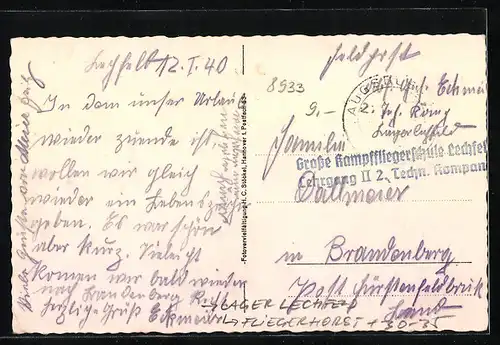 Lechfeld 12.I.40
In dem unser Urlaub
wieder zuende ist
wollen wir gleich
wieder ein Lebenszeichen
geben. Es war schön
aber kurz. Vieleicht
komen wir bald wieder
nach Brandenberg
herzliche Grüße Eckmeier
Viele Grüße von
Fotovervielfältigung H. C. Stöbbel, Hannover I, Postfach
Feldpost
8933
9.-
AUGSBURG
Gef. Eckmeier
2.
Lager Lechfeld
Familie
Große Kampffliegerschule Lechfeld
Lehrgang II 2. Techn. Kompanie
Dallmeier
in Brandenberg
Post Fürstenfeldbruck
Land
LAGER LECHFELD
→ FLIEGERHORST + 30-35